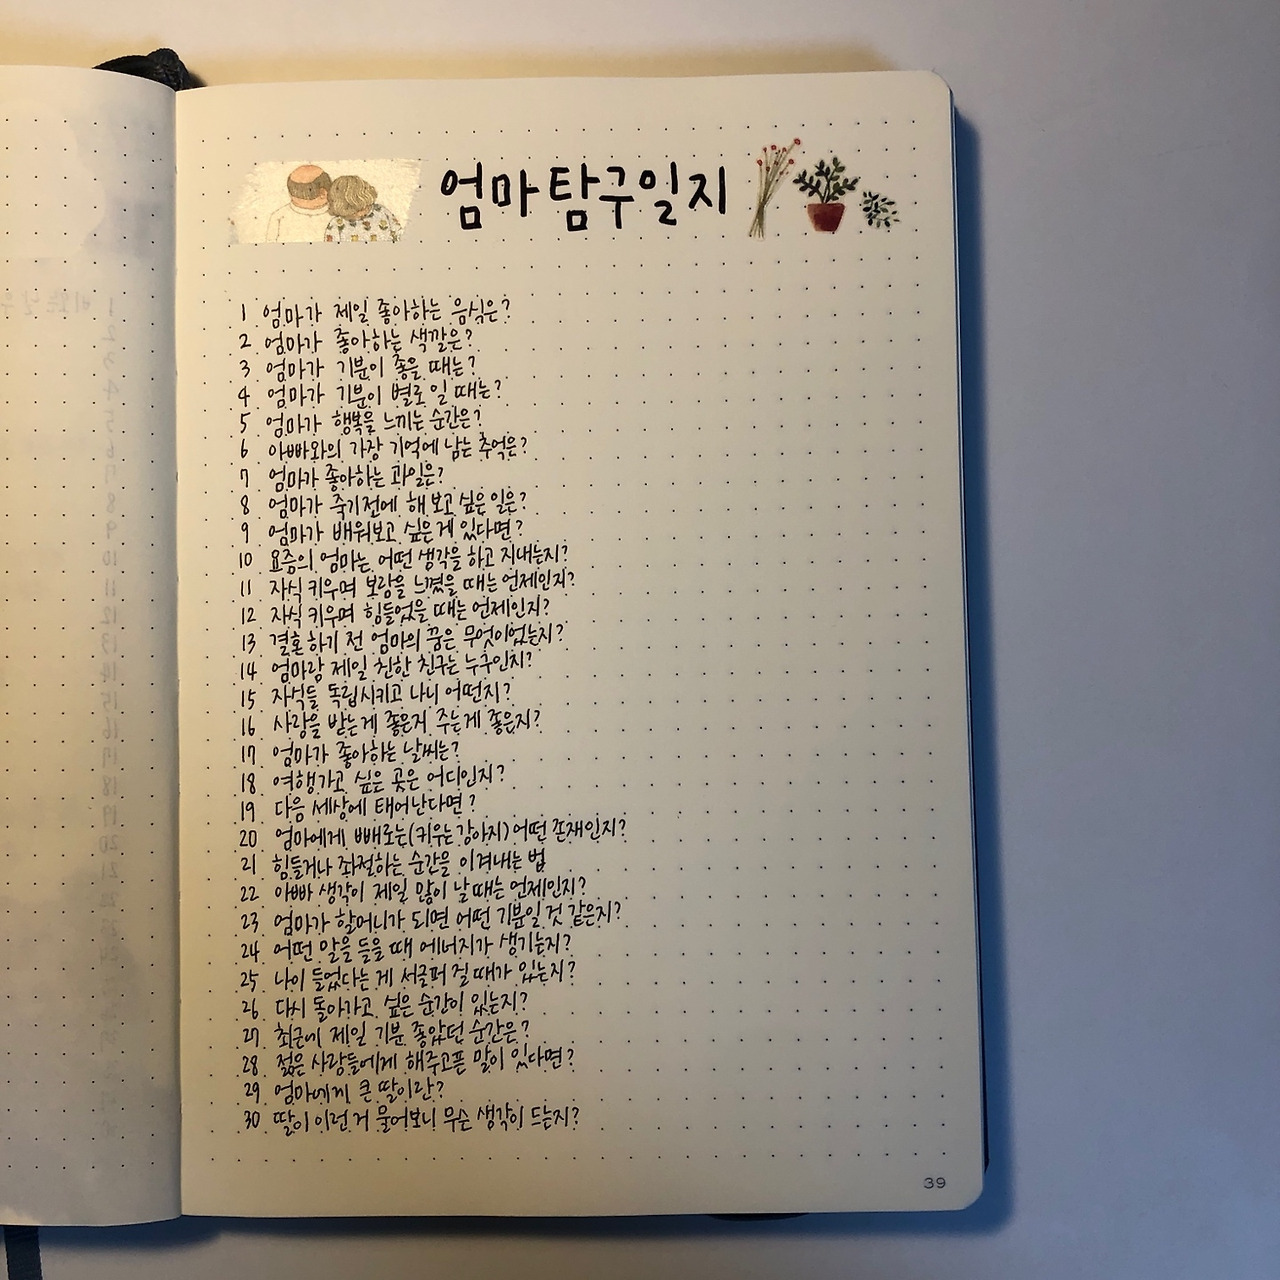 엄마탐구일지
1 엄마가 제일 좋아하는 음식은?
2 엄마가 좋아하는 색깔은?
3 엄마가 기분이 좋을 때는?
4 엄마가 기분이 별로 일 때는?
5 엄마가 행복을 느끼는 순간은?
6 아빠와의 가장 기억에 남는 추억은?
7 엄마가 좋아하는 과일은?
8 엄마가 죽기전에 해보고 싶은 일은?
9 엄마가 배워보고 싶은게 있다면?
10 요즘의 엄마는 어떤 생각을 하고 지내는지?
11 자식 키우며 보람을 느꼈을 때는 언제인지?
12 자식 키우며 힘들었을 때는 언제인지?
13 결혼 하기 전 엄마의 꿈은 무엇이었는지?
14 엄마랑 제일 친한 친구는 누구인지?
15 자식들 독립시키고 나니 어떤지?
16 사랑을 받는게 좋은지 주는게 좋은지?
17 엄마가 좋아하는 날씨는?
18 여행가고 싶은 곳은 어디인지?
19 다음 세상에 태어난다면?
20 엄마에게 빼로는(키우는 강아지) 어떤 존재인지?
21 힘들거나 좌절하는 순간을 이겨내는 법
22 아빠 생각이 제일 많이 날때는 언제인지?
23 엄마가 할머니가 되면 어떤 기분일 것 같은지?
24 어떤 말을 들을 때 에너지가 생기는지?
25 나이 들었다는 게 서글퍼 질 때가 있는지?
26 다시 돌아가고 싶은 순간이 있는지?
27 최근에 제일 기분 좋았던 순간은?
28 젊은 사람들에게 해주고픈 말이 있다면?
29 엄마에게 큰 딸이란?
30 딸이 이런거 물어보니 무슨 생각이 드는지?
39